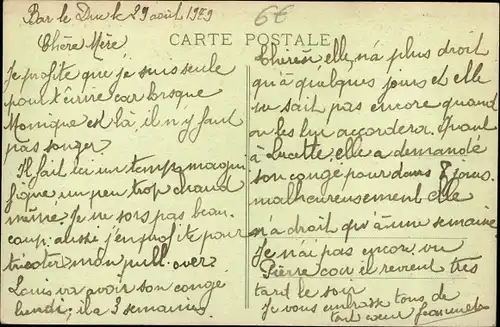 Bar le Duc le 29 août 1929
6€
CARTE POSTALE
Chère Mère
Je profite que je suis seule
pour t'écrire car lorsque
Monique est là, il n'y faut
pas songer.
Il fait ici un temps magni
fique un peu trop chaud
même. Je ne sors pas beau-
coup aussi j'en profite pour
tricoter mon pull. over.
Louis va avoir son congé
lundi, il a 3 semaines.
Thérèse, elle n'a plus droit
qu'à quelques jours et elle
ne sait pas encore quand
on les lui accordera. Quant
à Lucette, elle a demandé
son congé pour dans 8 jours.
malheureusement elle
n'a droit qu'à une semaine
Je n'ai pas encore vu
Pierre car il revient très
tard le soir
Je vous embrasse tous de
tout cœur